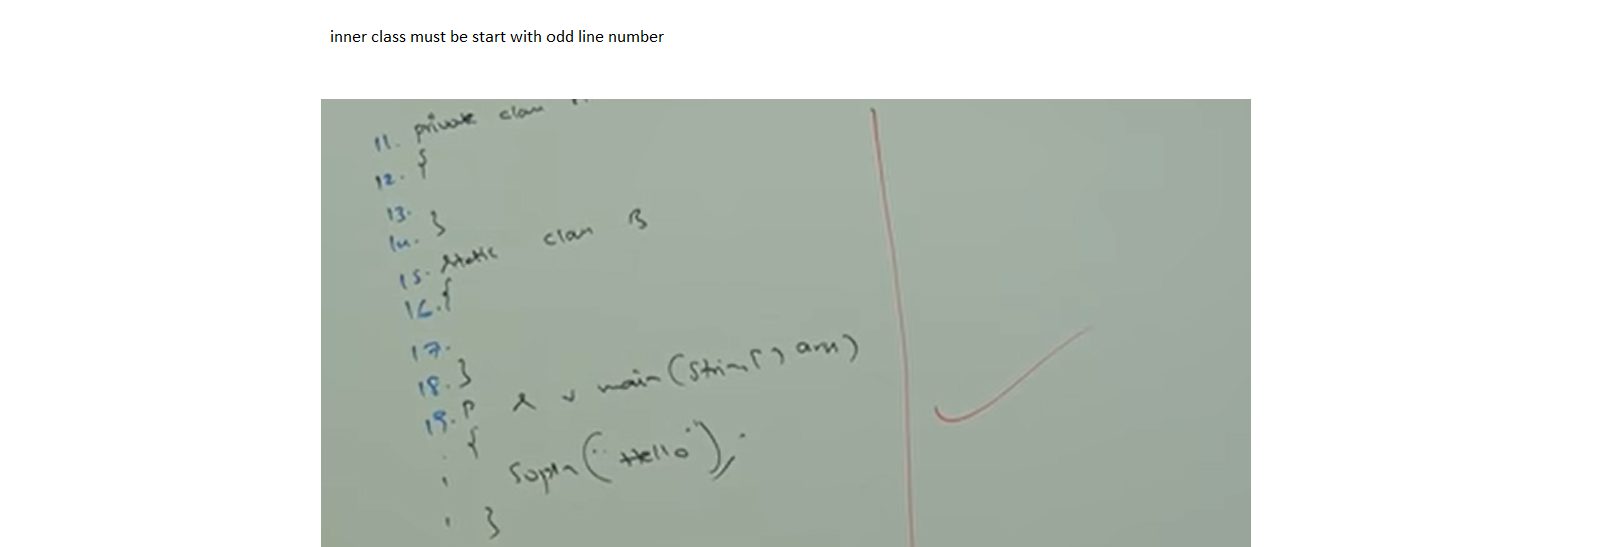 inner class must be start with odd line number
11. private class
12. {
13.
14. }
15. static class B
16. {
17.
18. }
19. P s v main(String[] args)
{
Sopln("Hello");
}